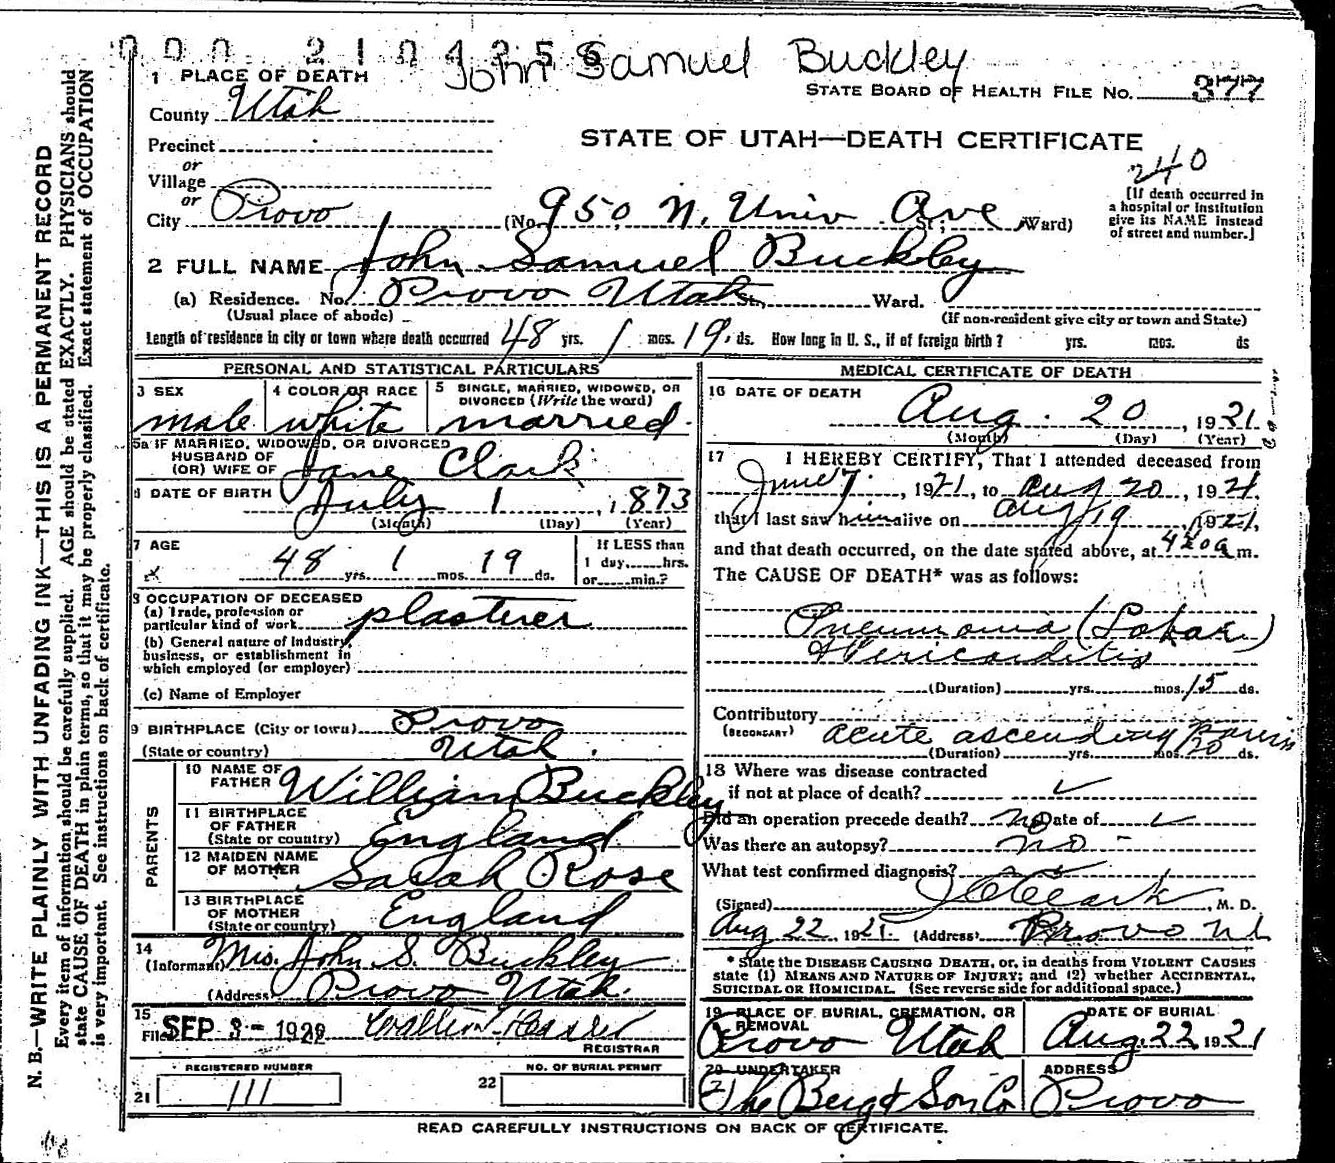 000 210425 6
John Samuel Buckley
1 PLACE OF DEATH
STATE BOARD OF HEALTH FILE NO. 377
County Utah
STATE OF UTAH—DEATH CERTIFICATE
Precinct
240
or
Village
or
[If death occurred in
a hospital or institution
give its NAME instead
of street and number.]
City Provo (No. 950, N. Univ. Ave St.; Ward)
2 FULL NAME John Samuel Buckley
(a) Residence. No. Provo Utah St., Ward.
(Usual place of abode) (If non-resident give city or town and State)
Length of residence in city or town where death occurred 48 yrs. 1 mos. 19 ds. How long in U. S., if of foreign birth? yrs. mos. ds
PERSONAL AND STATISTICAL PARTICULARS
3 SEX
male
4 COLOR OR RACE
white
5 SINGLE, MARRIED, WIDOWED, OR
DIVORCED (Write the word)
married.
5a IF MARRIED, WIDOWED, OR DIVORCED
HUSBAND OF
(OR) WIFE OF Jane Clark
6 DATE OF BIRTH July 1, 1873
(Month) (Day) (Year)
7 AGE
48 yrs. 1 mos. 19 ds.
If LESS than
1 day, hrs.
or min.?
8 OCCUPATION OF DECEASED
(a) Trade, profession or
particular kind of work plasterer
(b) General nature of Industry,
business, or establishment in
which employed (or employer)
(c) Name of Employer
9 BIRTHPLACE (City or town) Provo
(State or country) Utah.
PARENTS
10 NAME OF
FATHER William Buckley
11 BIRTHPLACE
OF FATHER
(State or country) England
12 MAIDEN NAME
OF MOTHER Sarah Rose
13 BIRTHPLACE
OF MOTHER
(State or country) England
14
(Informant) Mrs. John S. Buckley
(Address) Provo Utah.
15
Filed SEP 3 - 192
REGISTRAR
REGISTERED NUMBER
21 111
22 NO. OF BURIAL PERMIT
MEDICAL CERTIFICATE OF DEATH
16 DATE OF DEATH
Aug. 20, 1921
(Month) (Day) (Year)
17 I HEREBY CERTIFY, That I attended deceased from
June 7, 1921, to Aug 20, 1921,
that I last saw him alive on Aug 19, 1921,
and that death occurred, on the date stated above, at 4 20 a m.
The CAUSE OF DEATH* was as follows:
Pneumonia (Lobar)
& Pericarditis
(Duration) yrs. mos. 15 ds.
Contributory
(SECONDARY) acute ascending
(Duration) yrs. mos. 20 ds.
18 Where was disease contracted
if not at place of death?
Did an operation precede death? no Date of
Was there an autopsy? no -
What test confirmed diagnosis?
(Signed) Clark, M. D.
Aug 22, 1921 (Address) Provo Ut
* State the DISEASE CAUSING DEATH, or, in deaths from VIOLENT CAUSES
state (1) MEANS AND NATURE OF INJURY; and (2) whether ACCIDENTAL,
SUICIDAL OR HOMICIDAL. (See reverse side for additional space.)
19 PLACE OF BURIAL, CREMATION, OR
REMOVAL
Provo Utah
DATE OF BURIAL
Aug. 22 1921
20 UNDERTAKER
The Berg & Son Co
ADDRESS
Provo
READ CAREFULLY INSTRUCTIONS ON BACK OF CERTIFICATE.
N. B.—WRITE PLAINLY WITH UNFADING INK—THIS IS A PERMANENT RECORD
Every item of information should be carefully supplied. AGE should be stated EXACTLY. PHYSICIANS should
state CAUSE OF DEATH in plain terms, so that it may be properly classified. Exact statement of OCCUPATION
is very important. See instructions on back of certificate.